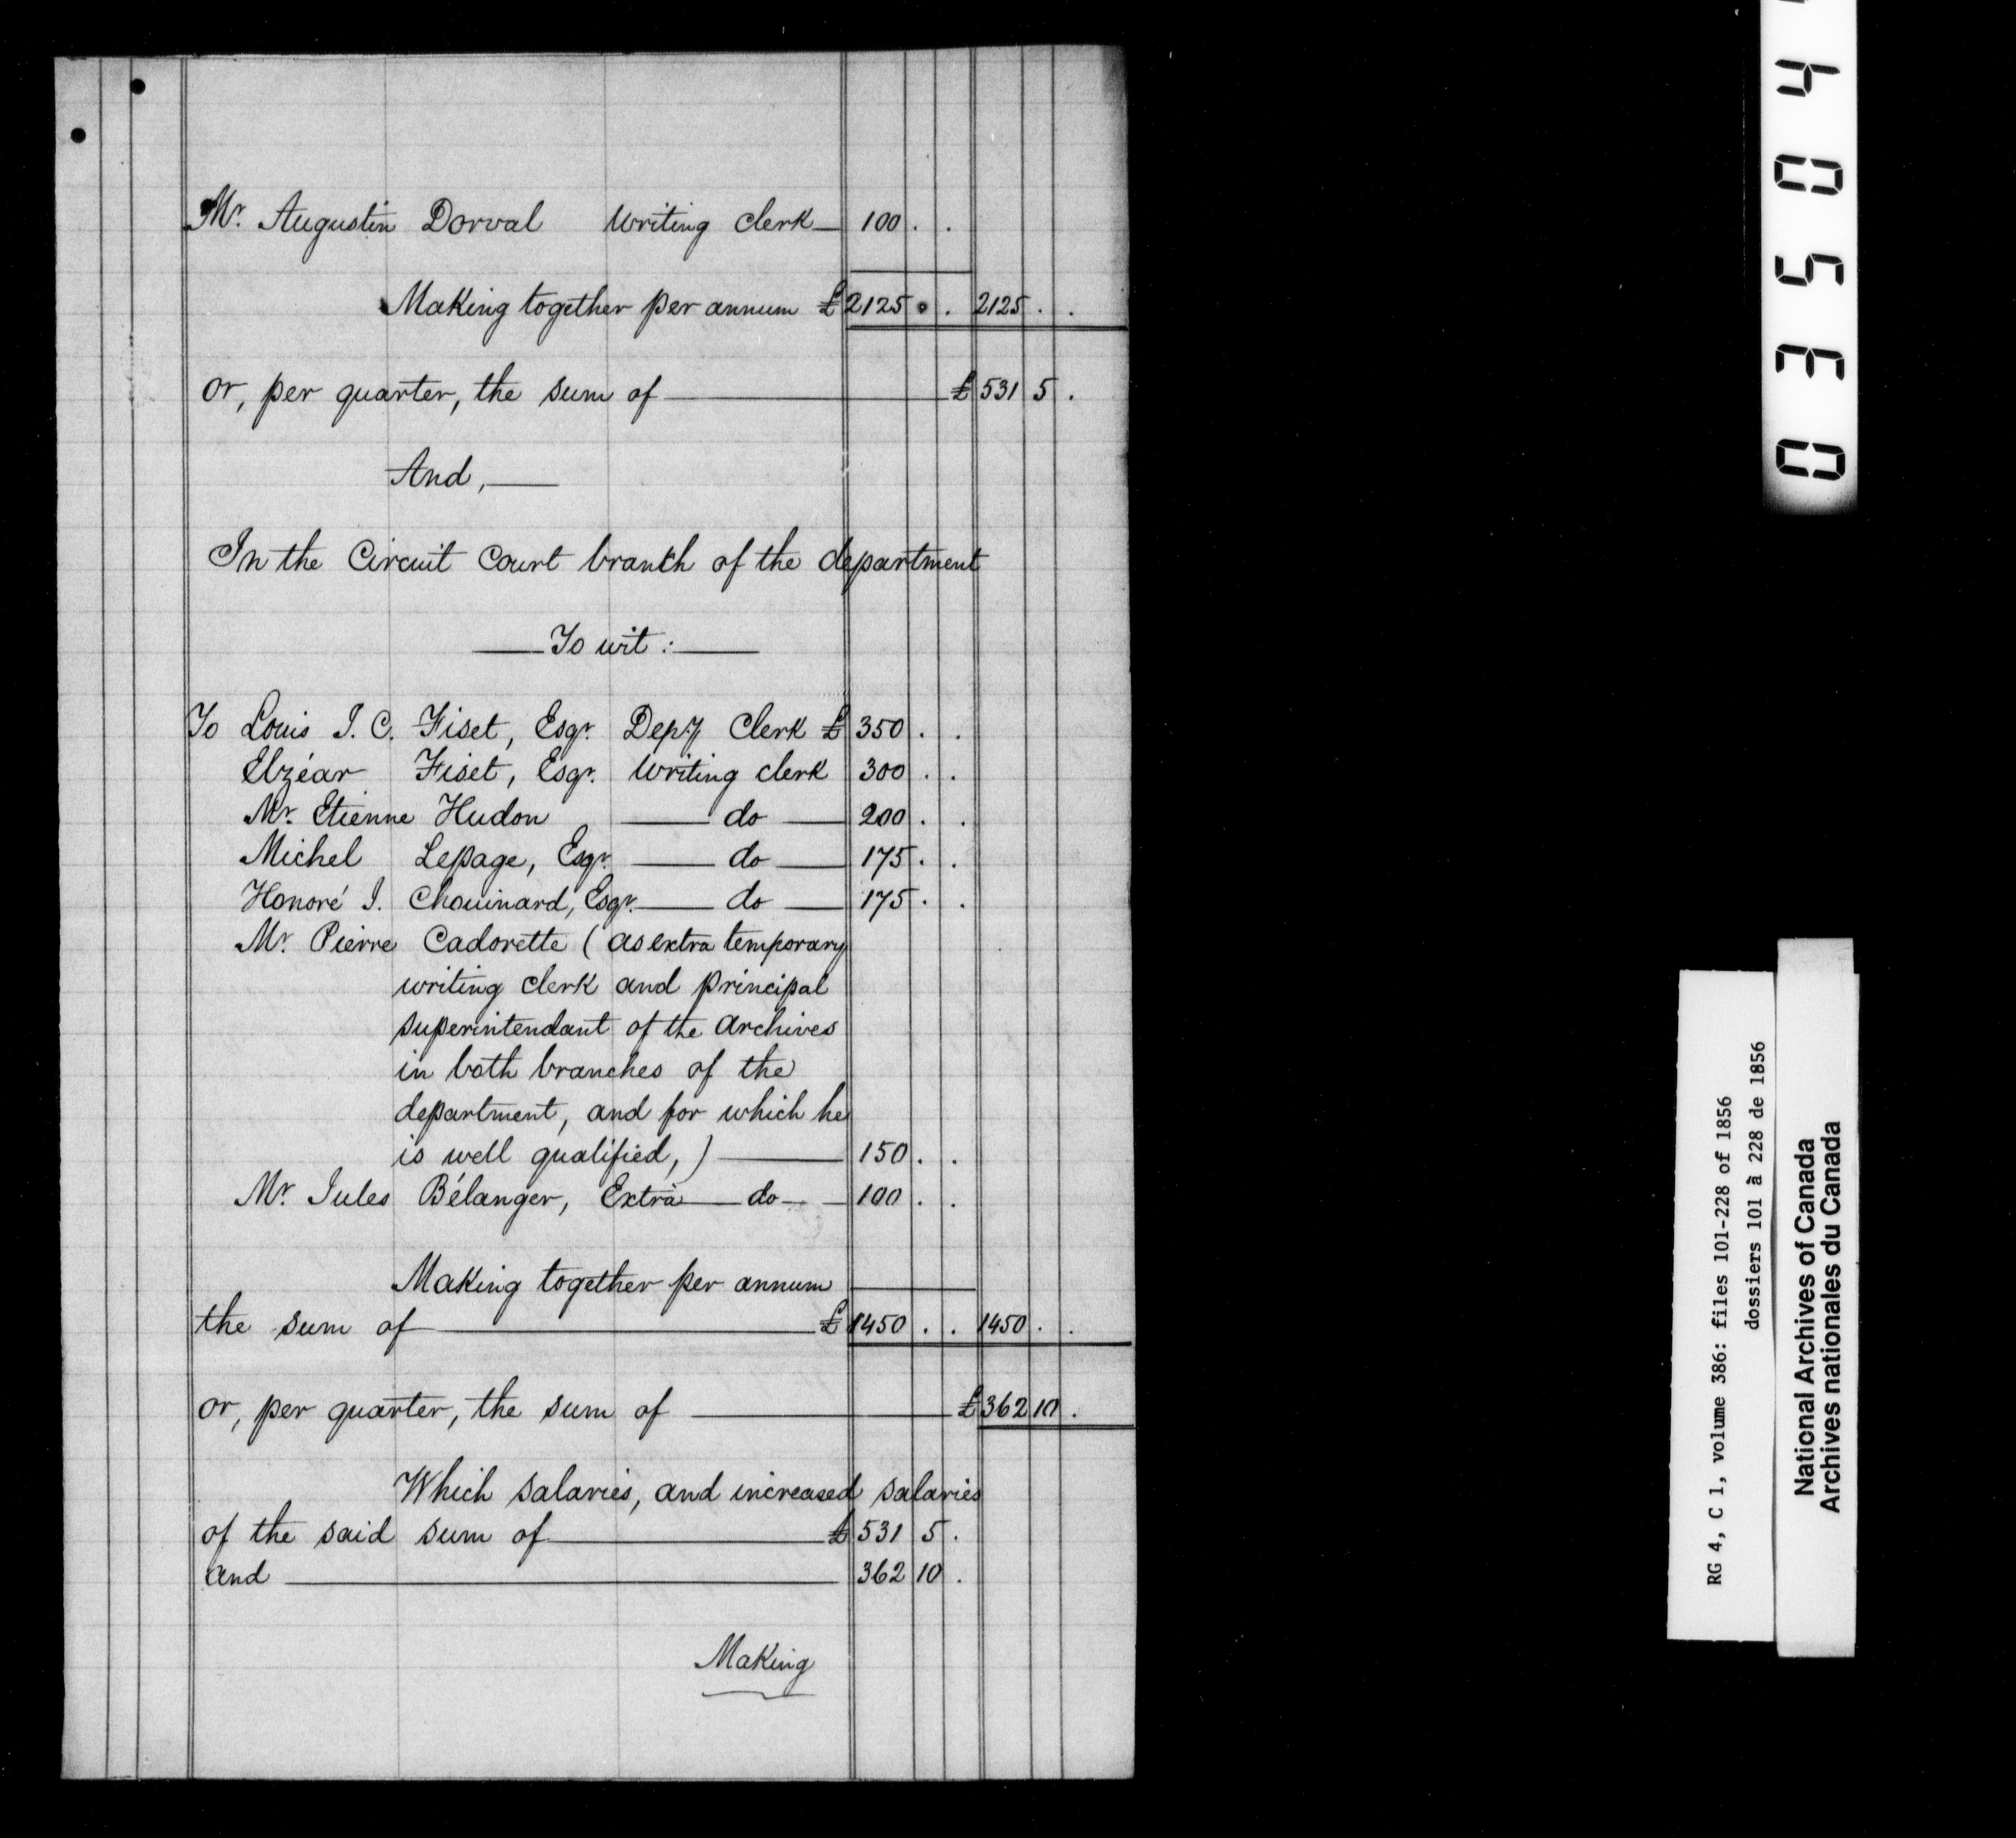 Mr. Augustin Dorval Writing clerk — 100 . .
Making together per annum £ 2125 . . 2125 . .
or, per quarter, the sum of — £ 531 5 .
And, —
In the Circuit Court branch of the department
— To wit : —
To Louis J. C. Fiset, Esqr. Depy Clerk £ 350 . .
Elzéar Fiset, Esqr. Writing clerk 300 . .
Mr. Etienne Hudon — do — 200 . .
Michel Lepage, Esqr. — do — 175 . .
Honoré J. Chouinard, Esqr. — do — 175 . .
Mr. Pierre Cadorette ( as extra temporary
writing clerk and principal
superintendant of the archives
in both branches of the
department, and for which he
is well qualified, ) — 150 . .
Mr. Jules Bélanger, Extra — do — 100 . .
Making together per annum
the sum of — £ 1450 . . 1450 . .
or, per quarter, the sum of — £ 362 10 .
Which salaries, and increased salaries
of the said sum of — £ 531 5 .
and — 362 10 .
Making
0 3 5 0 4
RG 4, C 1, volume 386: files 101-228 of 1856
dossiers 101 à 228 de 1856
National Archives of Canada
Archives nationales du Canada